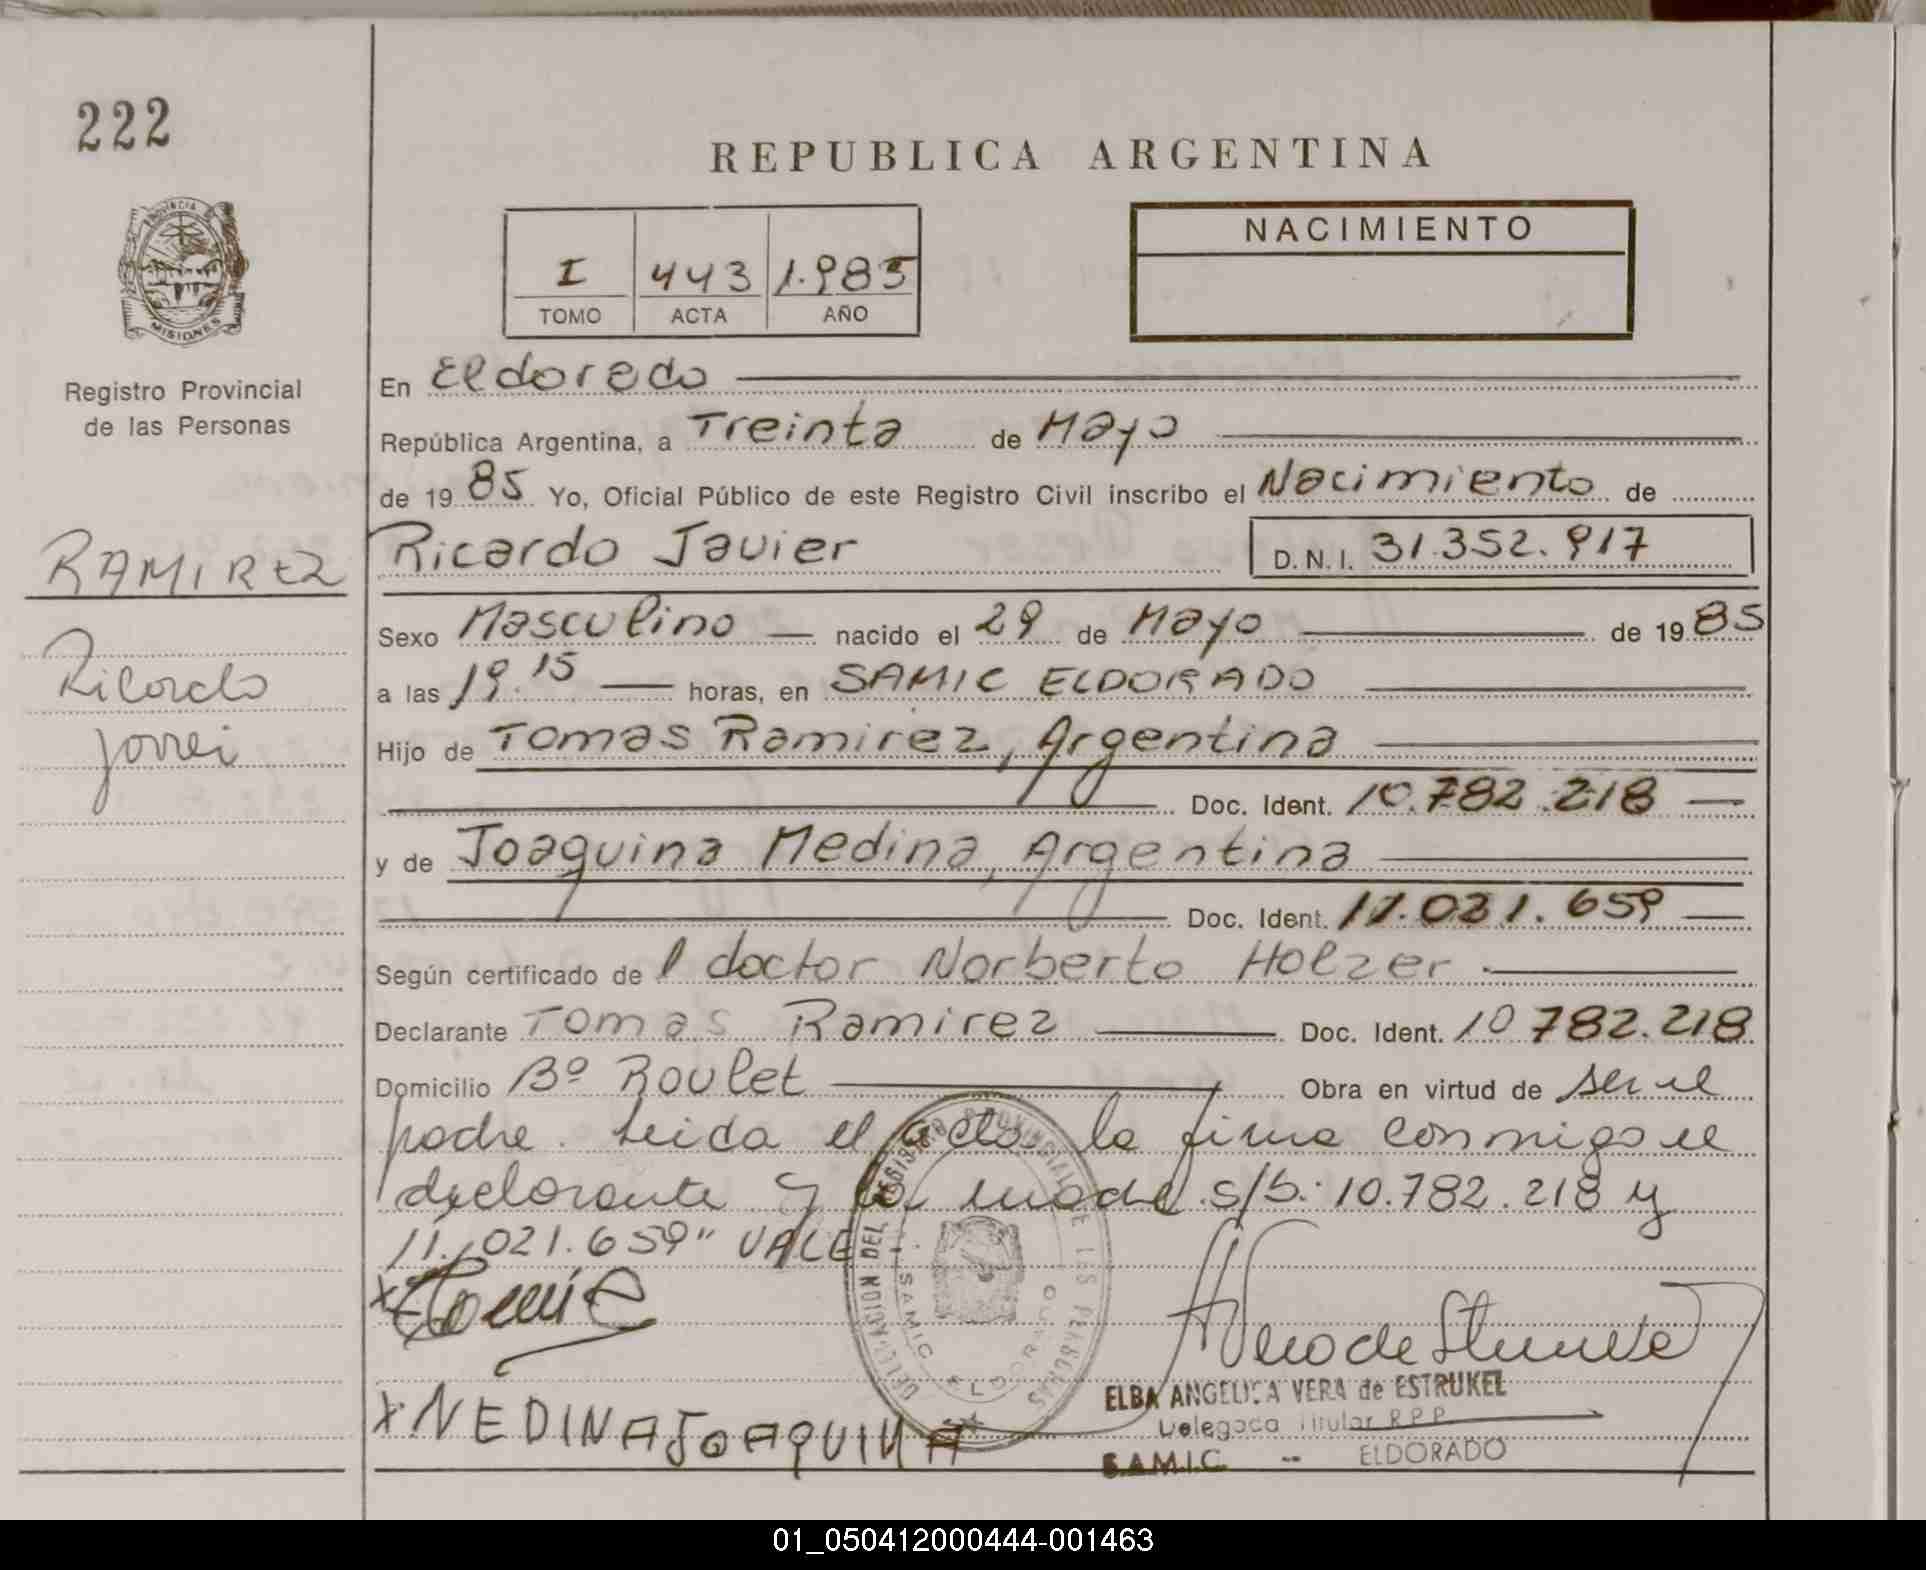 222
REPUBLICA ARGENTINA
PROVINCIA DE
MISIONES
Registro Provincial
de las Personas
I 443 1.985
TOMO ACTA AÑO
NACIMIENTO
En Eldorado
República Argentina, a Treinta de Mayo
de 1985 Yo, Oficial Público de este Registro Civil inscribo el Nacimiento de
RAMIREZ
Ricardo Javier D.N.I. 31.352.917
Sexo Masculino nacido el 29 de Mayo de 1985
Ricardo
a las 19.15 horas, en SAMIC ELDORADO
Hijo de Tomas Ramirez, Argentina
Doc. Ident. 10.782.218
y de Joaquina Medina, Argentina
Doc. Ident. 11.021.659
Según certificado de l doctor Norberto Holzer.
Declarante Tomas Ramirez Doc. Ident. 10.782.218
Domicilio Bº Roulet Obra en virtud de ser el
padre. Leida el acta, la firma conmigo el
declarante y la madre. s/b: 10.782.218 y
11.021.659" VALE
DELEGACION DEL REGISTRO PROVINCIAL DE LAS PERSONAS
SAMIC ELDORADO
x
ELBA ANGELICA VERA de ESTRUKEL
Delegada Titular R.P.P.
S.A.M.I.C. -- ELDORADO
x NEDINA JOAQUINA
01_050412000444-001463